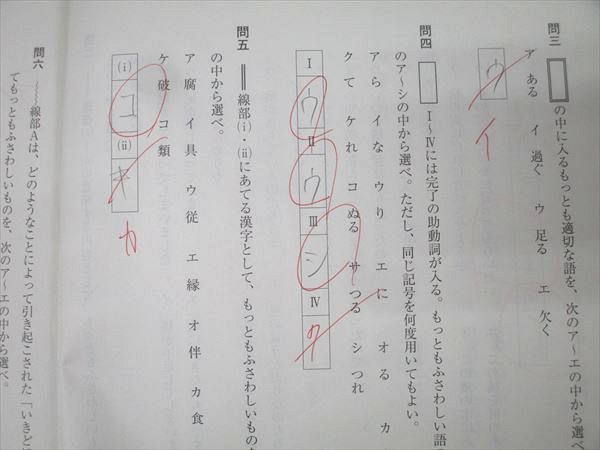 問三
の中に入るもっとも適切な語を、次のア～エの中から選べ
ア ある イ 過ぐ ウ 足る エ 欠く
ウ
イ
問四
Ⅰ～Ⅳには完了の助動詞が入る。もっともふさわしい語
のア～シの中から選べ。ただし、同じ記号を何度用いてもよい。
ア ら イ な ウ り エ に オ る カ
ク て ケ れ コ ぬる サ つる シ つれ
Ⅰ ウ Ⅱ ウ Ⅲ シ Ⅳ
問五
線部(ⅰ)・(ⅱ)にあてる漢字として、もっともふさわしいもの
の中から選べ。
ア 腐 イ 具 ウ 従 エ 縁 オ 伴 カ 食
ケ 破 コ 類
(ⅰ) コ (ⅱ) キ
カ
問六
線部Aは、どのようなことによって引き起こされた「いきど
てもっともふさわしいものを、次のア～エの中から選べ。